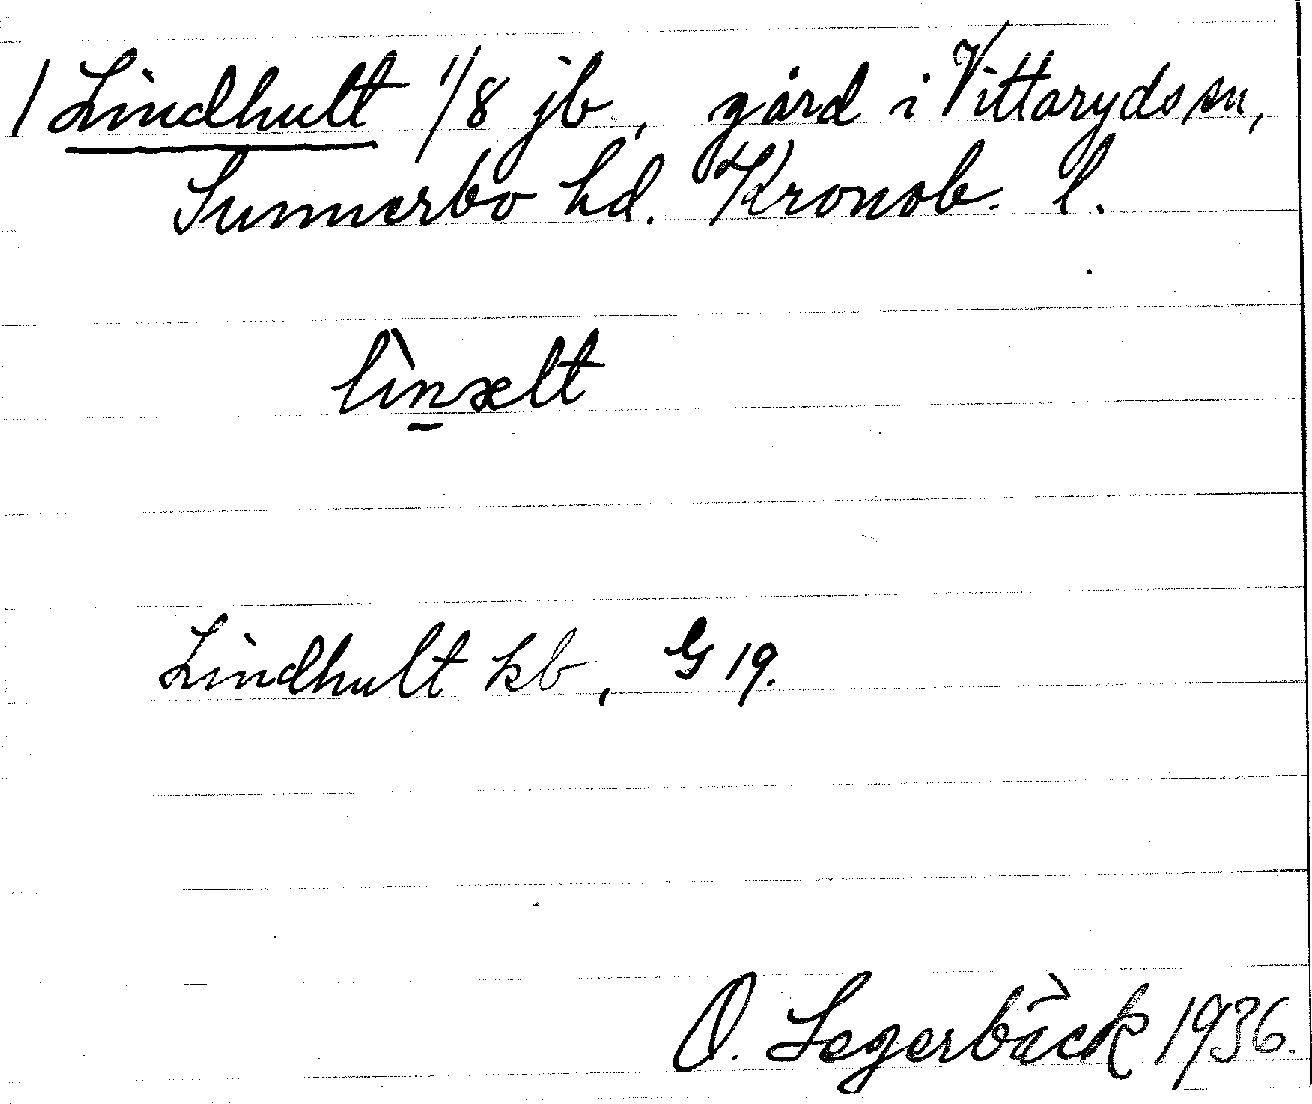 1 Lindhult 1/8 jb., gård i Vittaryds sn,
Sunnerbo hd. Kronob. l.
lìnælt
Lindhult kb, G 19.
O. Segerbäck 1936.